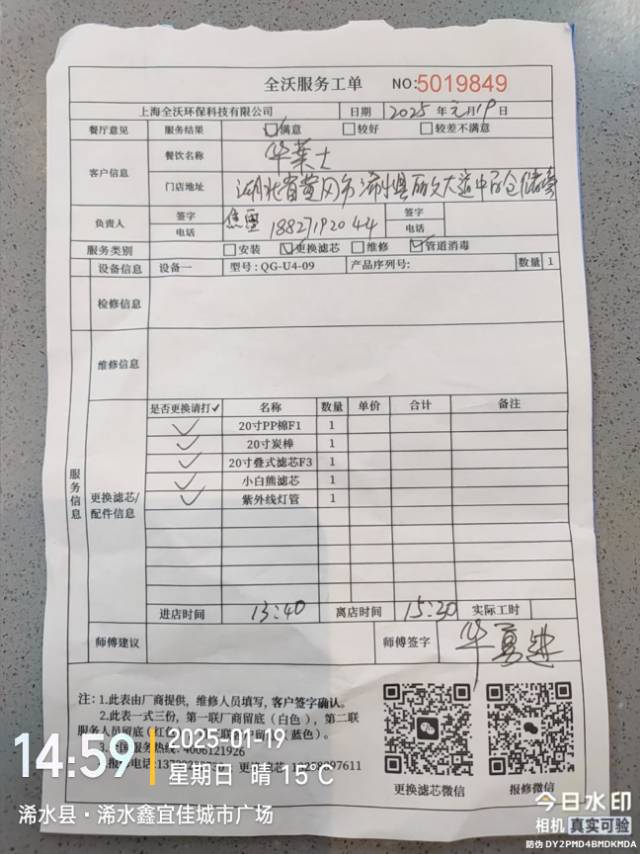 全沃服务工单 NO:5019849
上海全沃环保科技有限公司 日期 2025年元月19日
餐厅意见 服务结果 ☑满意 □较好 □较差不满意
客户信息 餐饮名称 华莱士
门店地址 湖北省黄冈市浠水县丽文大道中百仓储旁
负责人 签字 焦 签字
电话 18827192044 电话
服务类别 □安装 ☑更换滤芯 □维修 ☑管道消毒
设备信息 设备一 型号: QG-U4-09 产品序列号: 数量 1
检修信息
维修信息
服务信息
更换滤芯/配件信息
是否更换请打✓ 名称 数量 单价 合计 备注
✓ 20寸PP棉F1 1
✓ 20寸炭棒 1
✓ 20寸叠式滤芯F3 1
✓ 小白熊滤芯 1
✓ 紫外线灯管 1
进店时间 13:40 离店时间 15:30 实际工时
师傅建议 师傅签字 华勇进
注: 1.此表由厂商提供，维修人员填写，客户签字确认。
2.此表一式三份，第一联厂商留底（白色），第二联
服务人员留底（红色）
留底（蓝色）。
服务热线: 4006121926
电话:13
更换
更换滤芯微信 报修微信
14:59
2025-01-19
星期日 晴 15℃
浠水县·浠水鑫宜佳城市广场
今日水印
相机 真实可验
防伪 DY2PMD4BMDKMDA